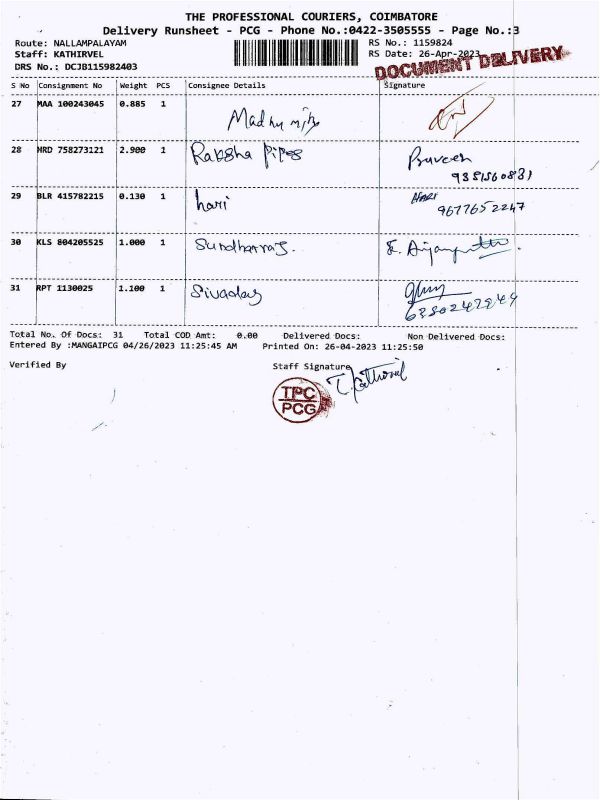 THE PROFESSIONAL COURIERS, COIMBATORE
Delivery Runsheet - PCG - Phone No.:0422-3505555 - Page No.:3
Route: NALLAMPALAYAM RS No.: 1159824
Staff: KATHIRVEL RS Date: 26-Apr-2023
DRS No.: DCJB115982403 DOCUMENT DELIVERY
S No Consignment No Weight PCS Consignee Details Signature
27 MAA 100243045 0.885 1 Madhu
28 HRD 758273121 2.900 1 Raksha Pipes Praveen
9381560831
29 BLR 415782215 0.130 1 hari HARI
9677652247
30 KLS 804205525 1.000 1 Sundharraj.
31 RPT 1130025 1.100 1 Sivadas
6380247949
Total No. Of Docs: 31 Total COD Amt: 0.00 Delivered Docs: Non Delivered Docs:
Entered By :MANGAIPCG 04/26/2023 11:25:45 AM Printed On: 26-04-2023 11:25:50
Verified By Staff Signature
T. Kathirvel
TPC
PCG